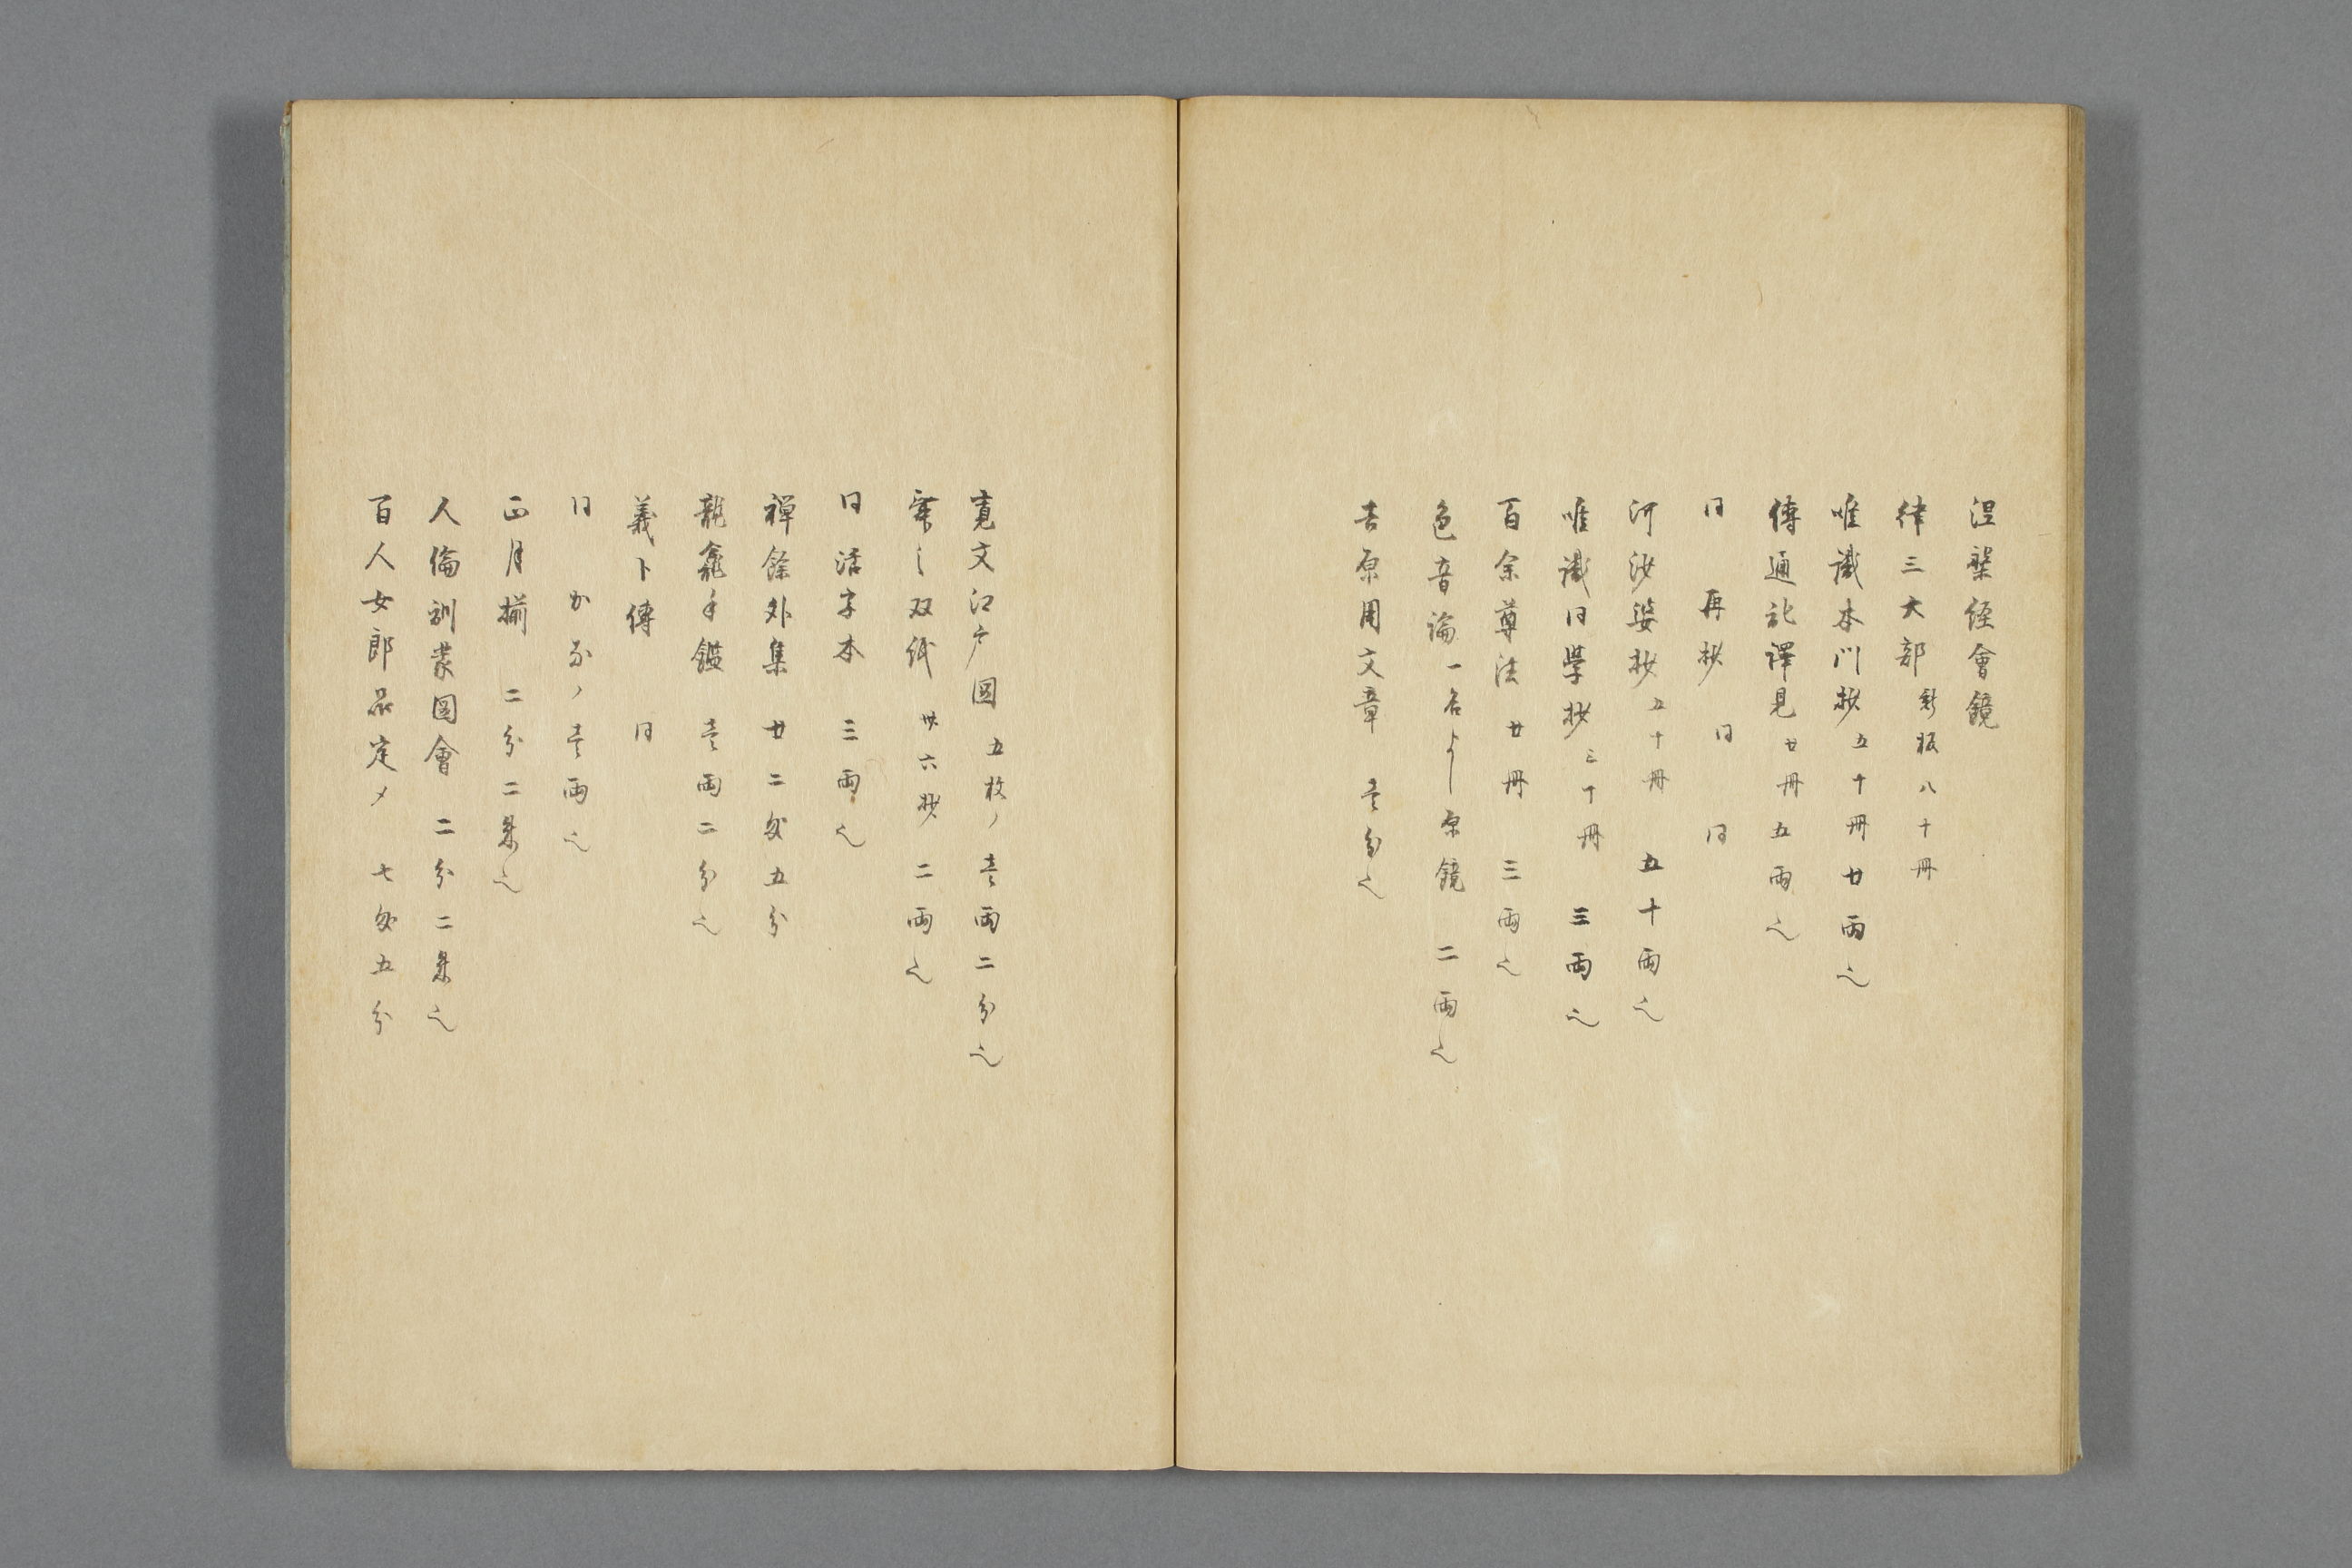 涅槃経會鏡
律三大部 新板八十冊
唯識本川抄 五十冊 廿両之
傳通記譯見 廿冊 五両之
同 再抄 同 同
河沙婆抄 五十冊 五十両之
唯識同學抄 三十冊 三両之
百余尊法 廿冊 三両之
色音論 一名よし原鏡 二両之
吉原用文章 壱分之
寛文江戸図 五枚ノ 壱両二分之
双紙 卅六抄 二両之
同活字本 三両之
禅餘外集 廿二匁五分
龍龕手鑑 壱両二分之
義卜傳 同
同 かなノ 壱両之
正月揃 二分二朱之
人倫訓蒙図會 二分二朱之
百人女郎品定メ 七匁五分